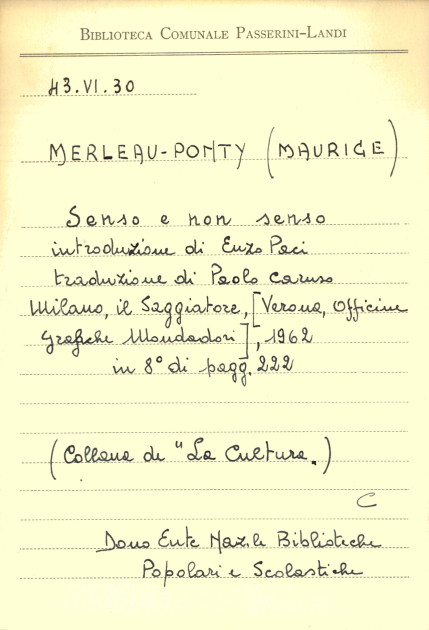 BIBLIOTECA COMUNALE PASSERINI-LANDI
43.VI.30
MERLEAU-PONTY (MAURICE)
Senso e non senso
introduzione di Enzo Paci
traduzione di Paolo Caruso
Milano, il Saggiatore, [Verona, Officine
Grafiche Mondadori], 1962
in 8° di pagg. 222
(Collana de "La Cultura.)
C
Dono Ente Naz.le Biblioteche
Popolari e Scolastiche